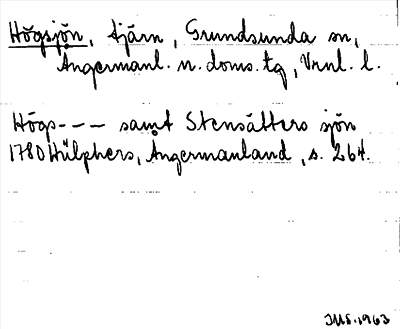 Högsjön, tjärn, Grundsunda sn,
Ångermanl. n. doms. tg, Vrnl. l.
Högs--- samt Stensätters sjön
1780 Hülphers, Ångermanland, s. 264.
JMS. 1963